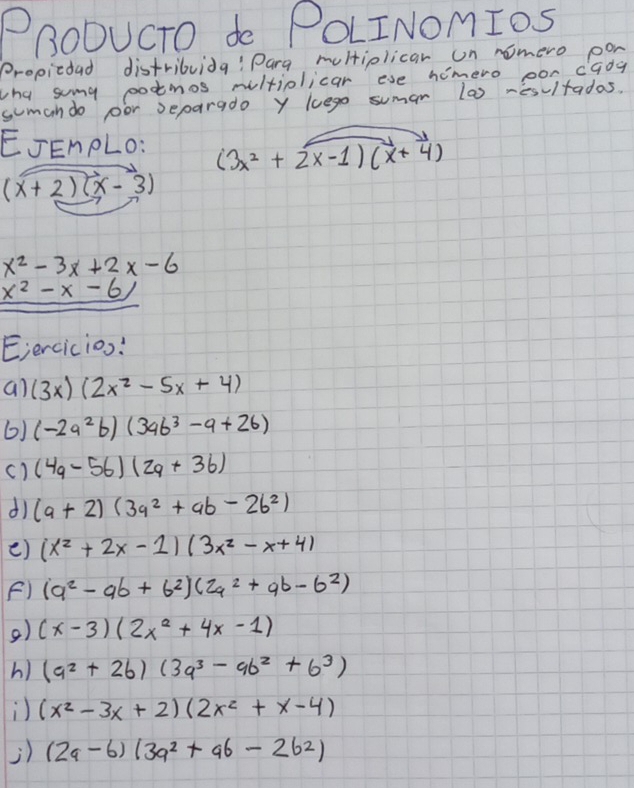 PRODUCTO de POLINOMIOS
Propiedad distribuida: Para multiplicar un número por
una suma podemos multiplicar ese número por cada
sumando por separado y luego sumar los resultados.
EJEMPLO:
(3x² + 2x-1)(x+4)
(x+2)(x-3)
x² - 3x + 2x - 6
x² - x - 6
Ejercicios:
a) (3x) (2x² - 5x + 4)
b) (-2a²b) (3ab³ - a + 2b)
c) (4a - 5b) (2a + 3b)
d) (a + 2) (3a² + ab - 2b²)
e) (x² + 2x - 1) (3x² - x + 4)
F) (a² - ab + b²) (2a² + ab - b²)
g) (x - 3) (2x² + 4x - 1)
h) (a² + 2b) (3a³ - ab² + b³)
i) (x² - 3x + 2) (2x² + x - 4)
j) (2a - b) (3a² + ab - 2b²)